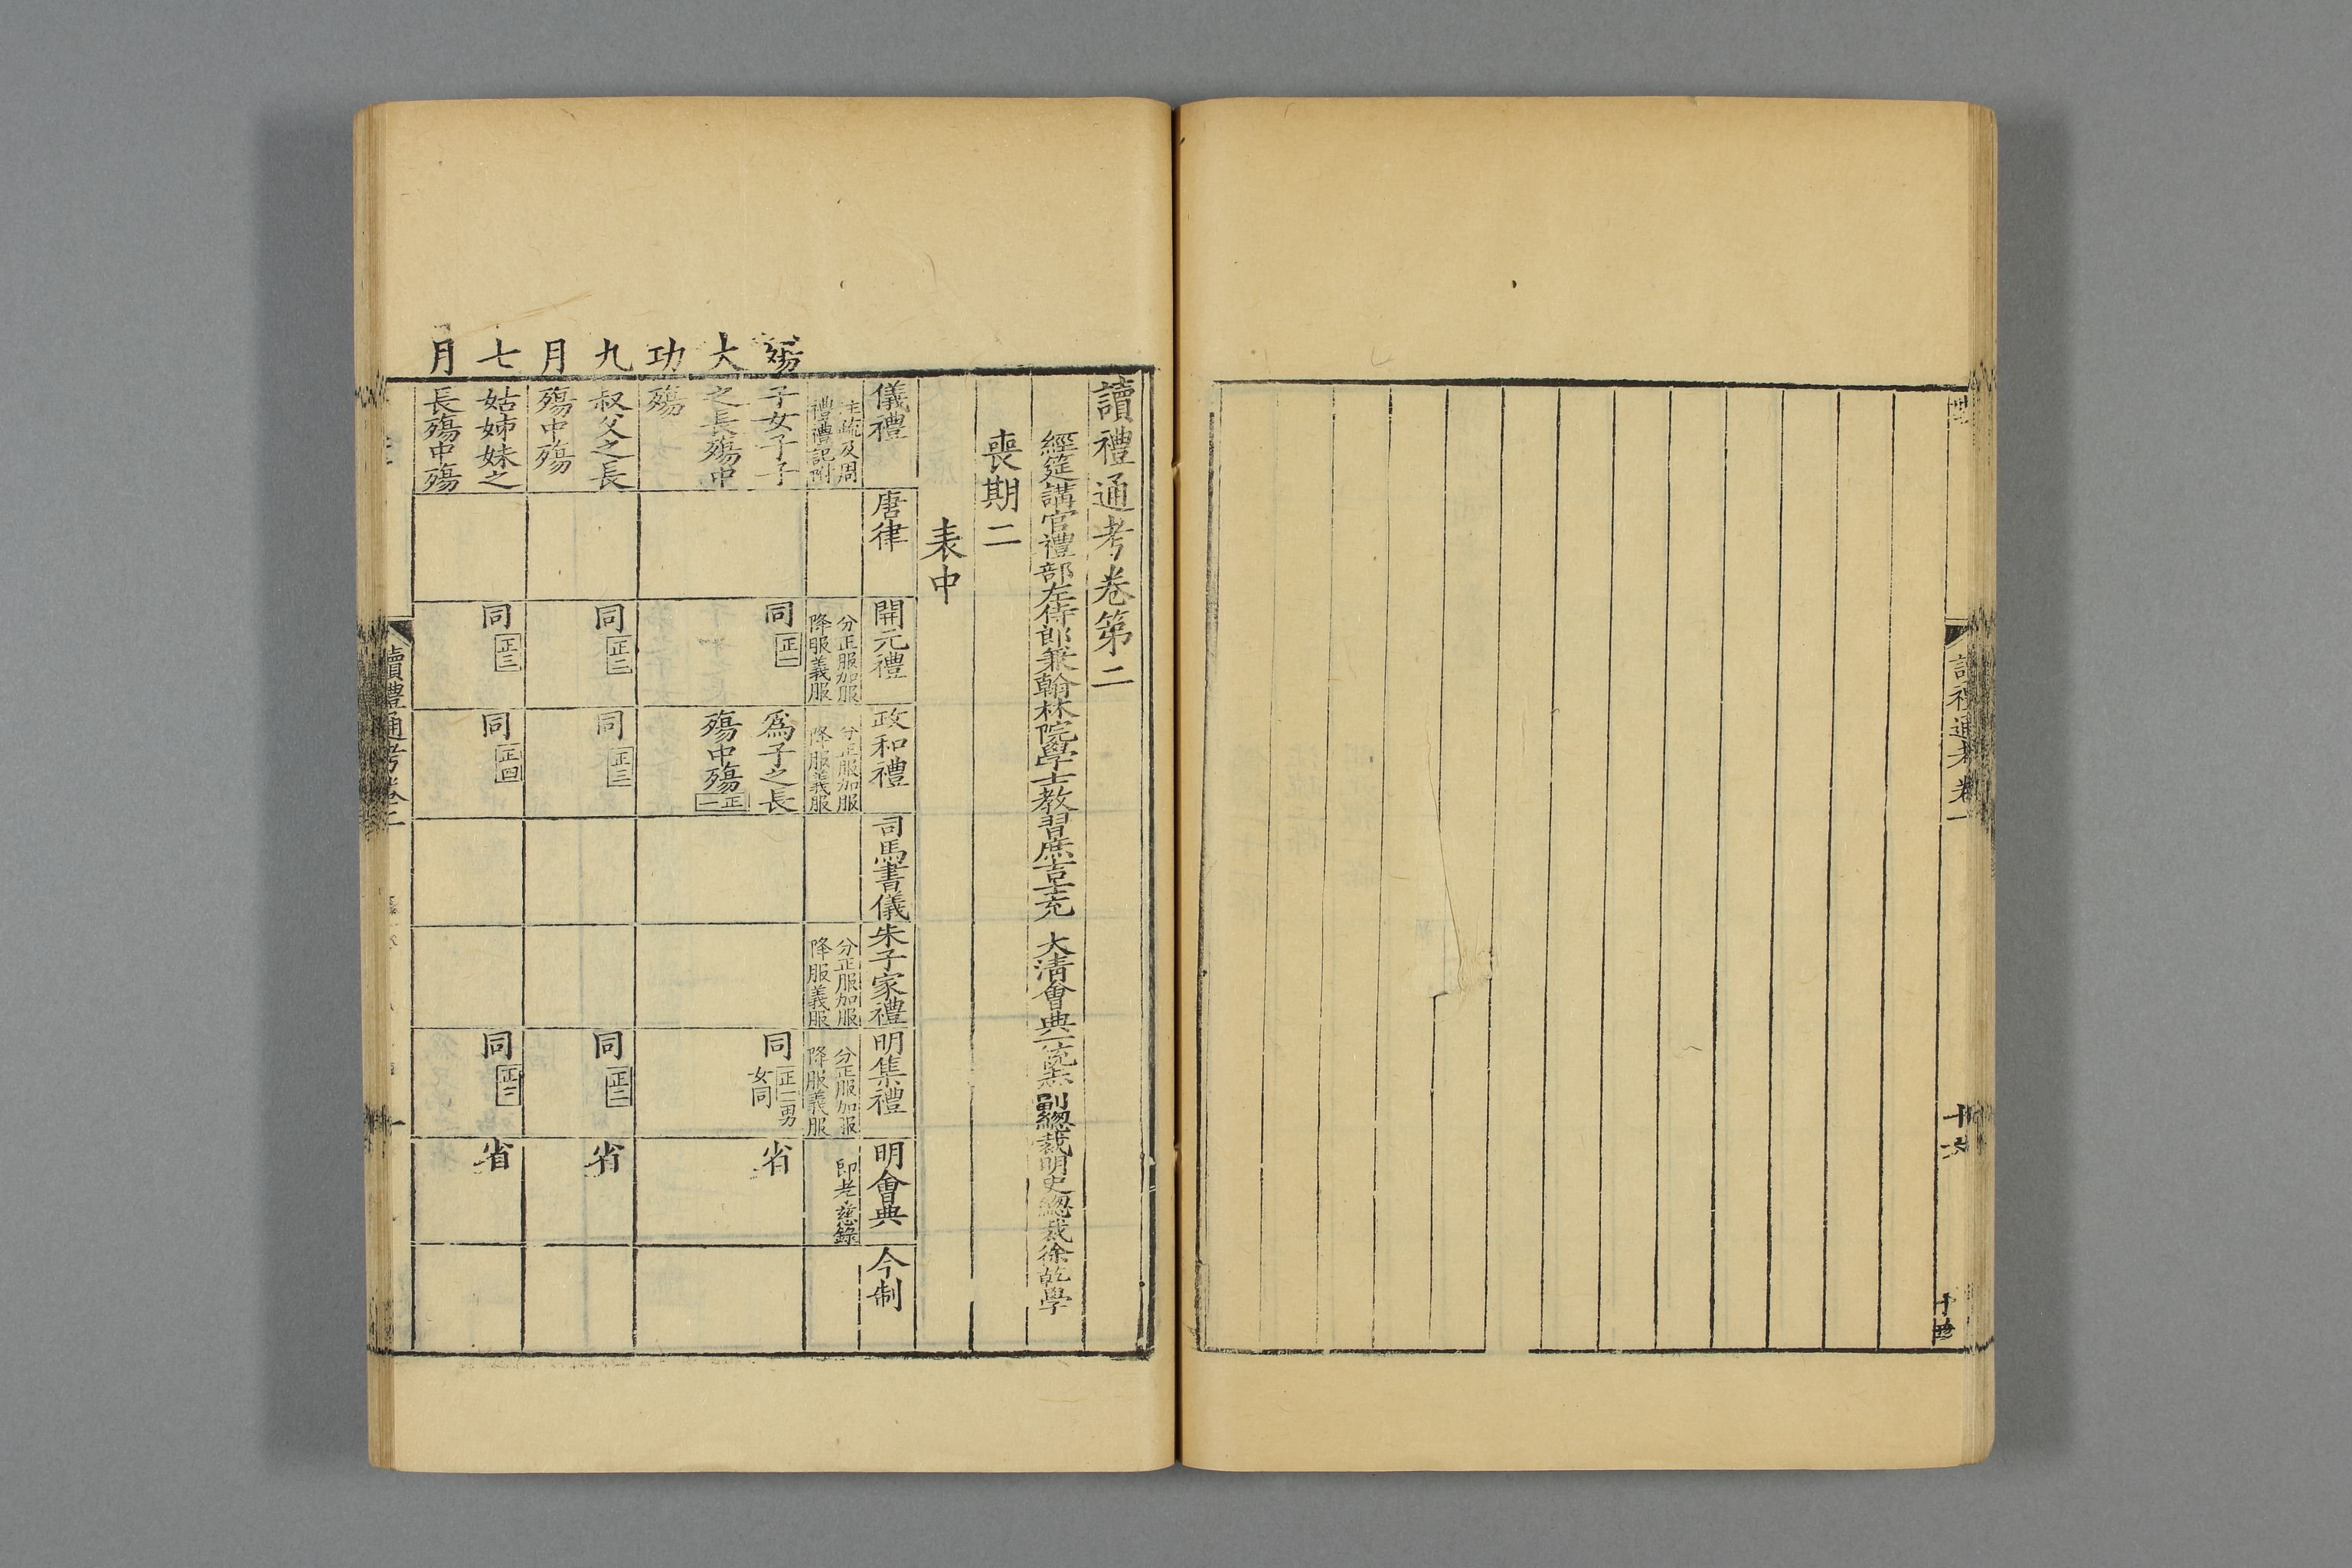 讀禮通考卷一
讀禮通考卷第二
經筵講官禮部左侍郎兼翰林院學士教習庶吉士充 大清會典一統志副總裁明史總裁徐乾學
喪期二
表中
儀禮 唐律 開元禮 政和禮 司馬書儀 朱子家禮 明集禮 明會典 今制
注疏及周 分正服加服 分正服加服 分正服加服 分正服加服 即孝慈錄
禮禮記附 降服義服 降服義服 降服義服 降服義服
殤大功九月七月
子女子子 同 正一 爲子之長 同 正二男 省
之長殤中 殤中殤 正一 女同
殤
叔父之長 同 正二 同 正三 同 正二 省
殤中殤
姑姊妹之 同 正三 同 正四 同 正二 省
長殤中殤
讀禮通考卷二